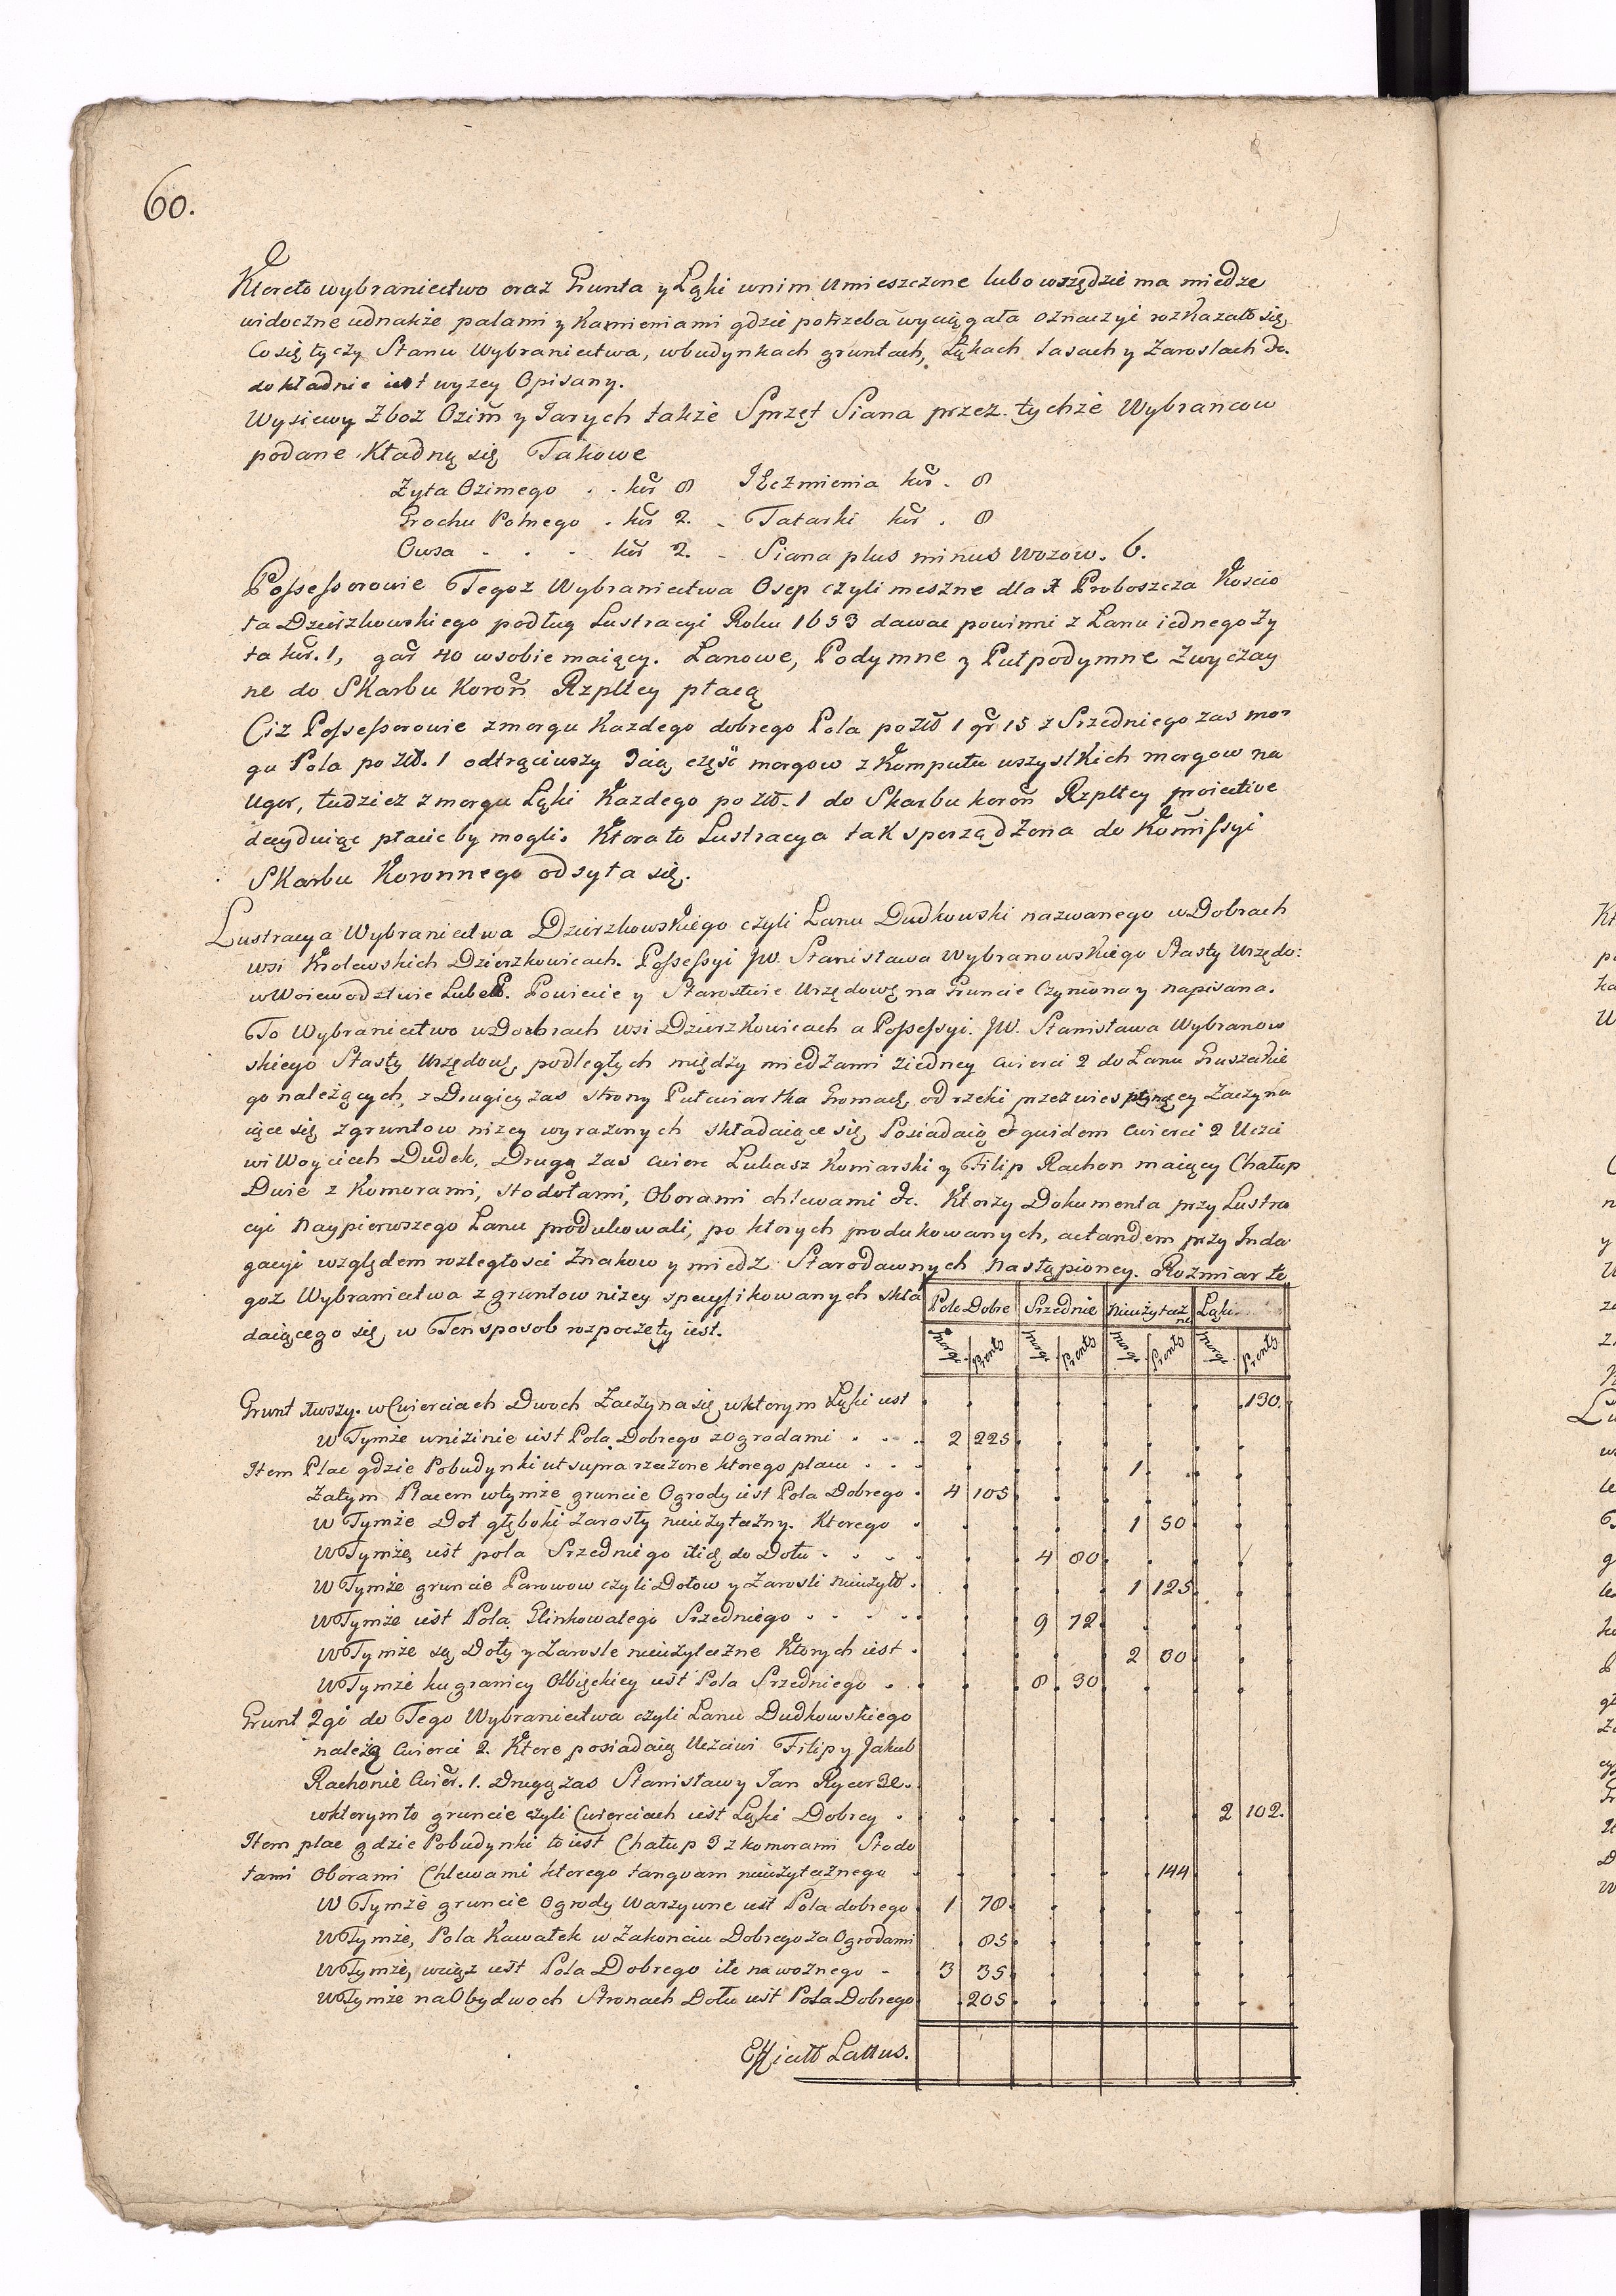 60.
Ktoreto wybraniectwo oraz Grunta y Łąki w nim umieszczone lubo wszędzie ma miedze
widoczne iednakże palami y kamieniami gdzie potrzeba wyciągała oznaczyć rozkazało się,
Co się tyczy Stanu Wybraniectwa, w budynkach gruntach, Łąkach Lasach y Zaroslach &c.
dokładnie iest wyzey Opisany.
Wysiewy Zboz Ozim y Jarych także Sprzęt Siana przez tychże Wybrancow
podane Kładną się Takowe
Zyta Ozimego . . kor 8 Jęczmienia kor . 8
Grochu Polnego . kor 2. . Tatarki kor . 8
Owsa . . . kor 2. . Siana plus minus wozow. 6.
Possessorowie Tegoż Wybraniectwa Osep czyli meszne dla X Proboszcza Koscio
ła Dzierzkowskiego podług Lustracyi Roku 1653 dawac powinni z Łanu iednego Zy
ta kor. 1, gar 40 w sobie maiący. Łanowe, Podymne y Pułpodymne Zwyczay
ne do Skarbu Koron Rzpltey płacą
Ciż Possessorowie z morgu każdego dobrego Pola po Złł 1 gr 15 z Srzedniego zas mor
gu Pola po Złł. 1 odtrąciwszy 3cią część morgow z Komputu wszystkich morgow na
Ugor, tudzież z morgu Łąki Każdego po Złł. 1 do Skarbu koron Rzpltey proiective
decyduiąc płacic by mogli. Ktora to Lustracya tak sporządzona do Kommissyi
Skarbu Koronnego odsyła się.
Lustracya Wybraniectwa Dzierzkowskiego czyli Łanu Dudkowski nazwanego w Dobrach
wsi Krolewskich Dzierzkowicach. Possessyi JW. Stanisława Wybranowskiego Stasty Urzędo:
w Woiewodztwie Lubell. Powiecie y Starostwie Urzędowę na Gruncie Czyniona y napisana.
To Wybraniectwo w Dobrach wsi Dzierzkowicach a Possessyi JW. Stanisława Wybranow
skiego Stasty Urzędowę, podległych między miedzami z iedney cwierci 2 do Łanu Gruszeckie
go należących, z Drugiey zas strony Pułcwiartka Gromadź, od rzeki przez wies płynącey Zaczyna
iące się z gruntow nizey wyrażonych składaiące się Posiadaią et quidem cwierci 2 Uczci
wi Woyciech Dudek, Drugą zas cwierc Lukasz Koniarski y Filip Rachon maiący Chałup
Dwie z Komorami, Stodołami, Oborami chlewami &c. Ktorzy Dokumenta przy Lustra
cyi Naypierwszego Łanu produkowali, po ktorych produkowanych, ac tandem przy Inda
gacyi względem rozległosci Znakow y miedz Starodawnych Nastąpioney. Rozmiar te
goż Wybraniectwa z gruntow nizey specyfikowanych skła
daiącego się w Ten sposob rozpoczęty iest.
Pole Dobre Srzednie Nieużytecz ne Łąki
Morgi Prenty Morgi Prenty Morgi Prenty Morgi Prenty
Grunt 1wszy. w Cwierciach Dwoch Zaczyna się w ktorym Łąki iest 130.
W Tymże w niżinie iest Pola Dobrego z Ogrodami . . . 2 225
Item Plac gdzie Pobudynki ut supra rzeczone ktorego placu . . . 1
Zatym Placem w tymże gruncie Ogrody iest Pola Dobrego . 4 105
W Tymże Doł głęboki Zarosły nieużyteczny. Ktorego . 1 50
W Tymże, iest pola Srzedniego iścię do Dołu . . . . 4 80
W Tymże gruncie Parowow czyli Dołow y Zarosli Nieużytł . 1 125
W Tymże iest Pola Glinkowatego Srzedniego . . . . . 9 72
W Tymże są Doły y Zarosle nieużyteczne Ktorych iest . 2 80
W Tymże ku granicy Olbięckiey iest Pola Srzedniego . 8 30
Grunt 2gi do Tego Wybraniectwa czyli Łanu Dudkowskiego
należą Cwierci 2. Ktore posiadaią Uczciwi Filip y Jakub
Rachonie Cwier. 1. Drugą zas Stanisław y Jan Rycerze.
w ktorym to gruncie czyli Cwierciach iest Łąki Dobrey . 2 102.
Item plac gdzie Pobudynki to iest Chałup 3 z komorami Stodo
łami Oborami Chlewami ktorego tanquam nieużytecznego . 144
W Tymże gruncie Ogrody Warzywne iest Pola dobrego . 1 70
W Tymże, Pola Kawałek w Zakonciu Dobrego za Ogrodami 85
W Tymże, wciąz iest Pola Dobrego ile nawoznego . 3 35
W Tymże na Obydwoch Stronach Dołu iest Pola Dobrego 205
Efficitt Lattus.